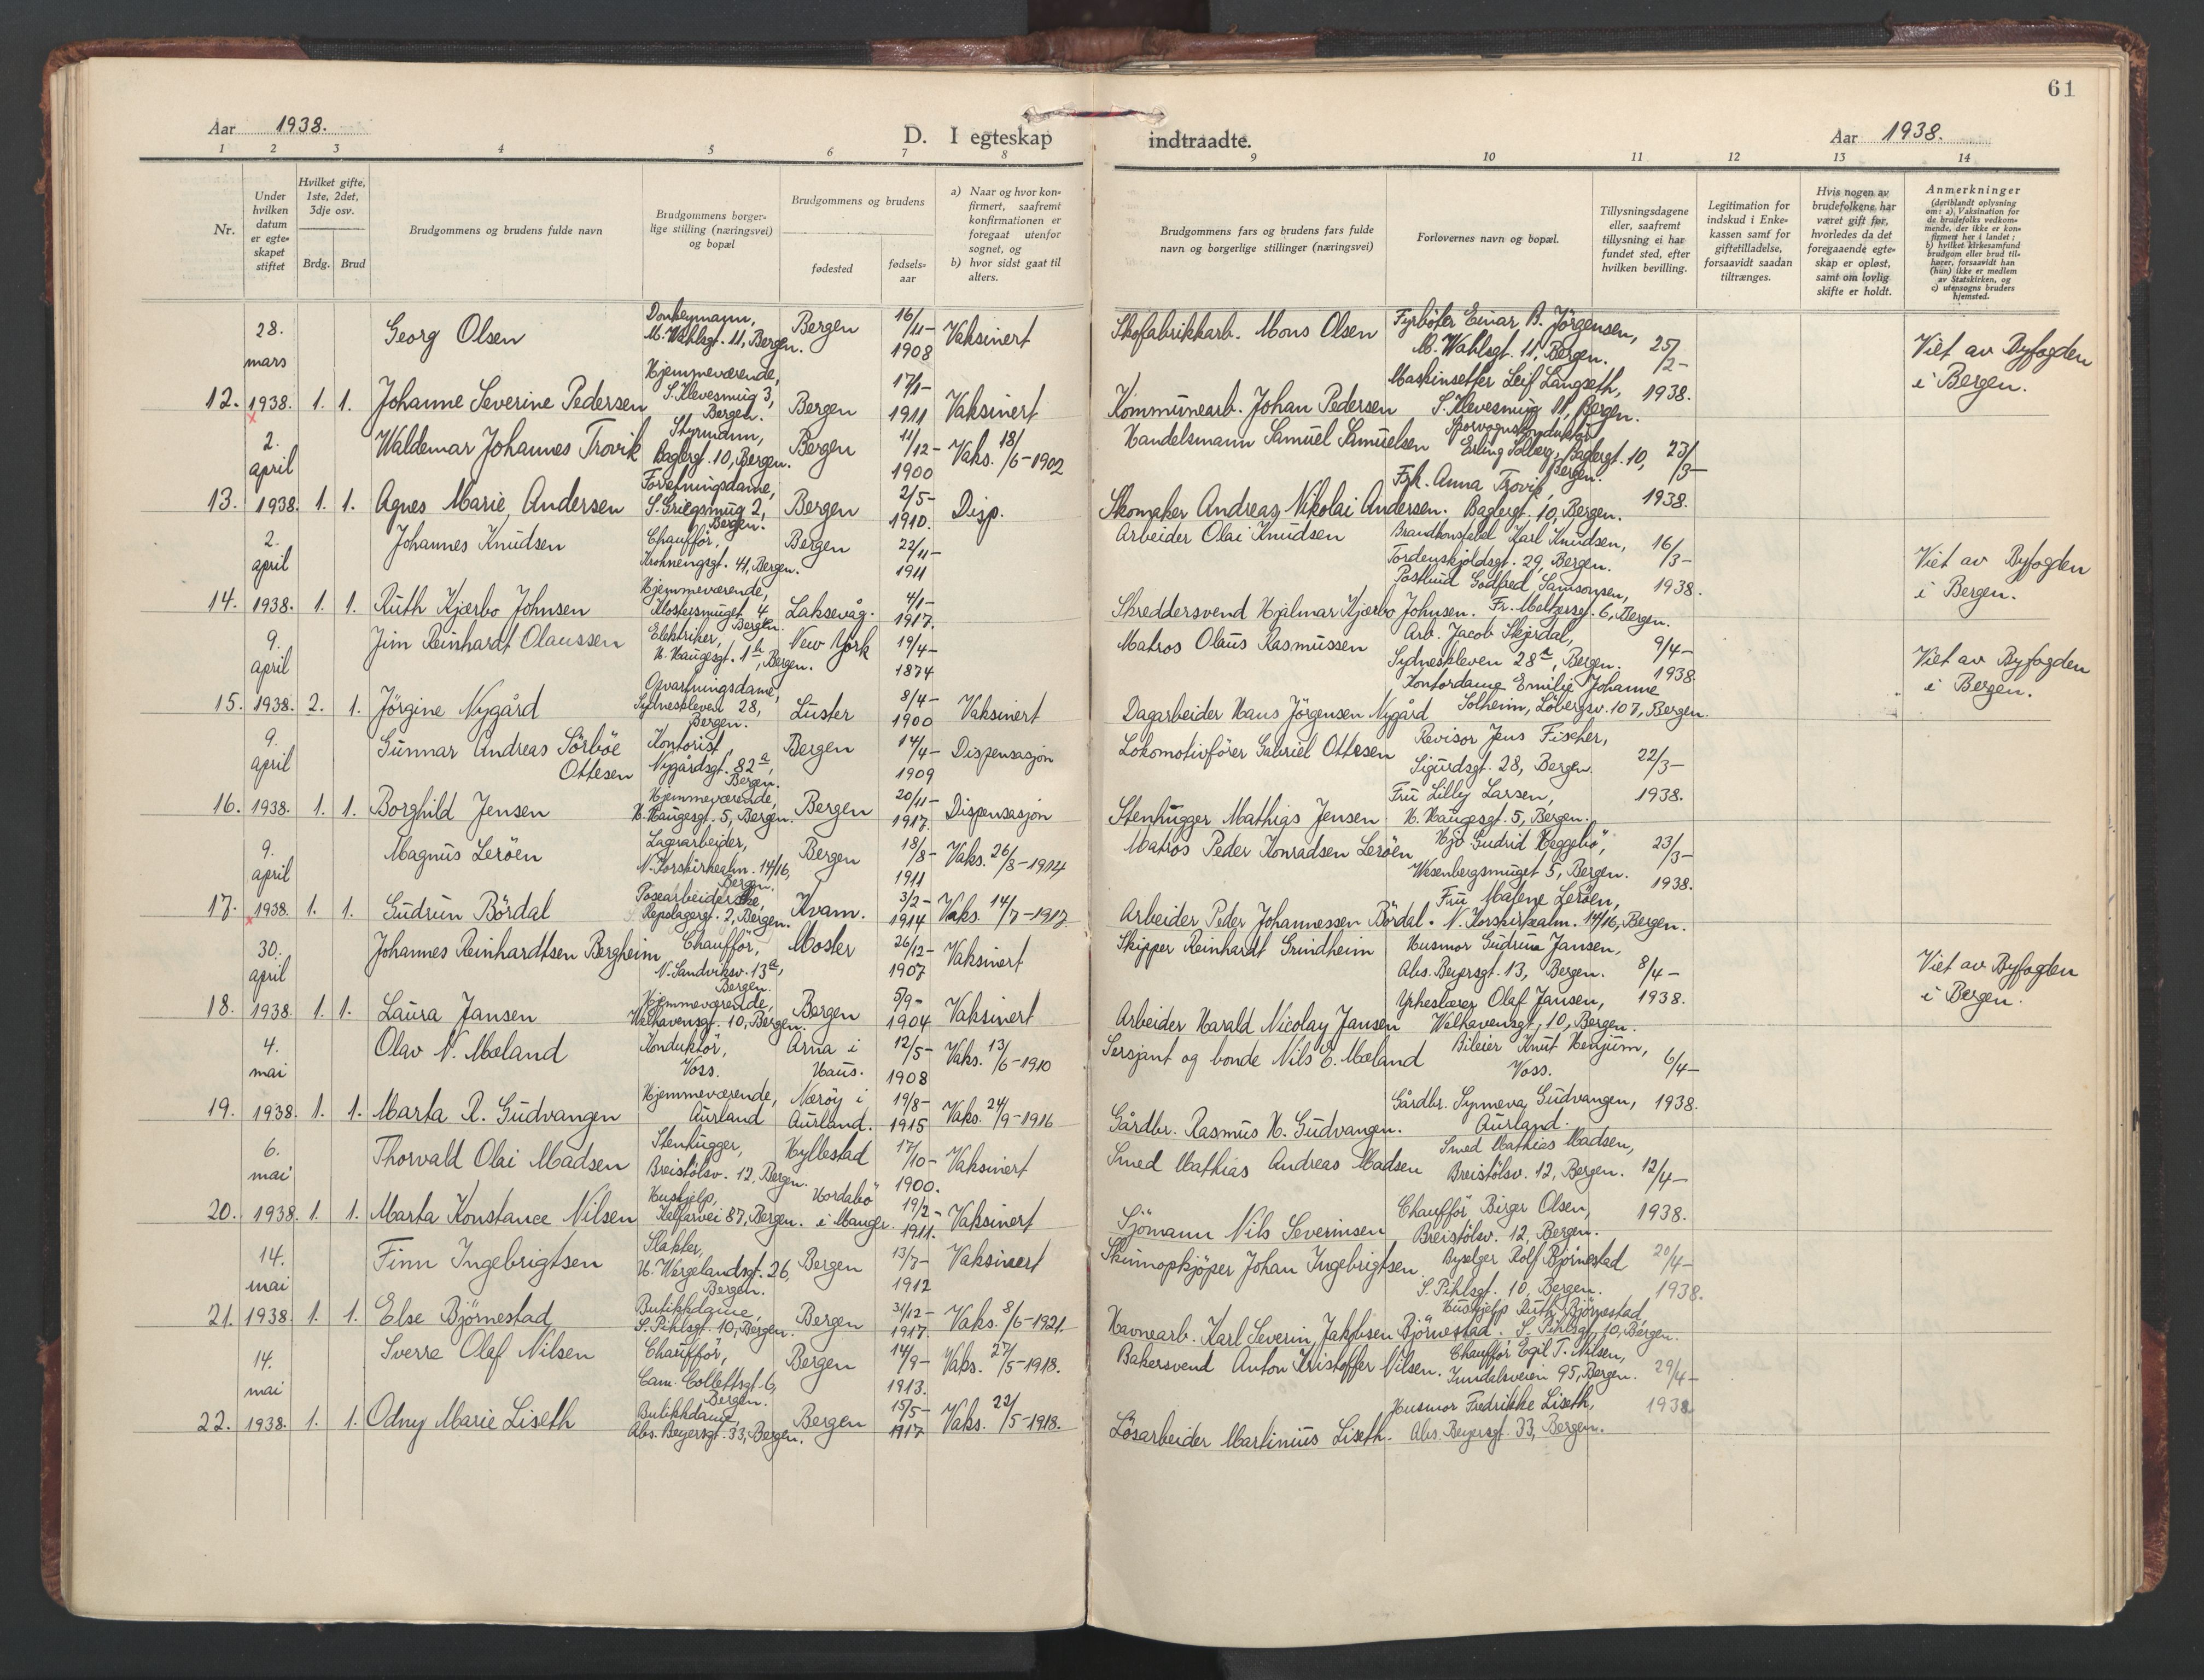 61
Aar 1938.
D. I egteskap indtraadte.
Aar 1938.
1 2 3 4 5 6 7 8 9 10 11 12 13 14
Nr.
Under hvilken datum er egte-skapet stiftet
Hvilket gifte, 1ste, 2det, 3dje osv.
Brdg. Brud
Brudgommens og brudens fulde navn
Brudgommens borger-lige stilling (næringsvei) og bopæl
Brudgommens og brudens
fødested
fødsels-aar
a) Naar og hvor kon-firmert, saafremt konfirmationen er foregaat utenfor sognet, og
b) hvor sidst gaat til alters.
Brudgommens fars og brudens fars fulde navn og borgerlige stillinger (næringsvei)
Forlovernes navn og bopæl.
Tillysningsdagene eller, saafremt tillysning ei har fundet sted, efter hvilken bevilling.
Legitimation for indskud i Enke-kassen samt for giftetilladelse, forsaavidt saadan tiltrænges.
Hvis nogen av brudefolkene har været gift før, hvorledes da det foregaaende egte-skap er opløst, samt om lovlig skifte er holdt.
Anmerkninger
(deriblandt oplysning om: a) Vaksination for de brudefolks vedkom-mende, der ikke er kon-firmert her i landet; b) hvilket kirkesamfund brudgom eller brud til-hører, forsaavidt han (hun) ikke er medlem av Statskirken, og c) utensogns bruders hjemsted.
28. mars
Georg Olsen
Donkeymann, M. Wahlsgt. 11, Bergen.
Bergen
16/11-1908
Vaksinert
Skofabrikkarb. Mons Olsen
Fyrbøter Einar B. Jörgensen, M. Wahlsgt. 11, Bergen.
25/2-1938.
Viet av Byfogden i Bergen.
12. 1938. 1. 1.
Johanne Severine Pedersen
Hjemmeværende, S. Klevesmug 3, Bergen.
Bergen
17/1-1911
Vaksinert
Kommunearb. Johan Pedersen
Maskinsetter Leif Langseth, S. Klevesmug 11, Bergen.
2. april
Waldemar Johannes Trovik
Styrmann, Baglergt. 10, Bergen.
Bergen
11/12-1900
Vaks. 18/6-1902
Handelsmann Samuel Samuelsen
Sporvognskonduktör Erling Solberg, Baglergt. 10, Bergen.
23/3-1938.
13. 1938. 1. 1.
Agnes Marie Andersen
Forretningsdame, S. Griegsmug 2, Bergen.
Bergen
2/5-1910.
Disp.
Skomaker Andreas Nikolai Andersen.
Frk. Anna Trovik, Baglergt. 10, Bergen.
2. april
Johannes Knudsen
Chaufför, Krohnengsgt. 41, Bergen.
Bergen
22/11-1911
Arbeider Olai Knudsen
Brandkonstabel Karl Knudsen, Tordenskjoldsgt. 29, Bergen.
16/3-1938.
Viet av Byfogden i Bergen.
14. 1938. 1. 1.
Ruth Kjærbo Johnsen
Hjemmeværende, Klostersmuget 4, Bergen.
Laksevåg.
4/1-1917.
Skreddersvend Hjalmar Kjærbo Johnsen.
Postbud Godfred Samsonsen, Fr. Meltzersgt. 6, Bergen.
9. april
Jim Reinhardt Olaussen
Elektriker, H. Haugesgt. 1b, Bergen.
New York
19/4-1874
Matros Olaus Rasmussen
Arb. Jacob Skjerdal, Sydneskleven 28a, Bergen.
9/4-1938
Viet av Byfogden i Bergen.
15. 1938. 2. 1.
Jörgine Nygård
Opvartningsdame, Sydneskleven 28, Bergen.
Luster
8/4-1900
Vaksinert
Dagarbeider Hans Jörgensen Nygård
Kontordame Emilie Johanne Solheim, Löbergsv. 107, Bergen.
9. april
Gunnar Andreas Sörböe Ottesen
Kontorist, Nygårdsgt. 82a, Bergen.
Bergen
14/4-1909
Dispensasjon
Lokomotivförer Gabriel Ottesen
Revisor Jens Fischer, Sigurdsgt. 28, Bergen.
22/3-1938.
16. 1938. 1. 1.
Borghild Jensen
Hjemmeværende, H. Haugesgt. 5, Bergen.
Bergen
20/11-1917.
Dispensasjon
Stenhugger Mathias Jensen
Fru Lilly Larsen, H. Haugesgt. 5, Bergen.
9. april
Magnus Leröen
Lagerarbeider, N. Korskirkealm. 14/16, Bergen.
Bergen
18/8-1911
Vaks. 26/8-1914
Matros Peder Konradsen Leröen
Hjv Gudrid Heggebö, Wesenbergsmuget 5, Bergen.
23/3-1938.
17. 1938. 1. 1.
Gudrun Bördal
Posearbeiderske, Repslagergt. 2, Bergen.
Kvam.
3/2-1914
Vaks. 14/7-1917.
Arbeider Peder Johannessen Bördal.
Fru Malene Leröen, N. Korskirkealm. 14/16, Bergen.
30. april
Johannes Reinhardtsen Bergheim
Chauffør, N. Sandviksv. 13a, Bergen.
Moster
26/12-1907
Vaksinert
Skipper Reinhardt Grindheim
Husmor Gudrun Jansen, Abs. Beyersgt. 13, Bergen.
8/4-1938.
Viet av Byfogden i Bergen.
18. 1938. 1. 1.
Laura Jansen
Hjemmeværende, Welhavensgt. 10, Bergen.
Bergen
5/9-1904
Vaksinert
Arbeider Harald Nicolay Jansen
Yrkeslærer Olaf Jansen, Welhavensgt. 10, Bergen.
4. mai
Olav N. Mæland
Konduktör, Voss.
Arna i Haus.
12/5-1908
Vaks. 13/6-1910
Sersjant og bonde Nils E. Mæland
Bileier Knut Henjum, Voss.
6/4-1938.
19. 1938. 1. 1.
Marta R. Gudvangen
Hjemmeværende, Aurland
Nærøy i Aurland.
19/8-1915
Vaks. 24/9-1916
Gårdbr. Rasmus H. Gudvangen.
Gårdbr. Synneva Gudvangen, Aurland.
6. mai
Thorvald Olai Madsen
Stenhugger, Breistölsv. 12, Bergen.
Hyllestad
17/10-1900.
Vaksinert
Smed Mathias Andreas Madsen
Smed Mathias Madsen, Breistölsv. 12, Bergen.
12/4-1938.
20. 1938. 1. 1.
Marta Konstance Nilsen
Hushjelp, Kalfarvei 87, Bergen.
Hordabö i Manger.
19/2-1911.
Vaksinert
Sjömann Nils Severinsen
Chaufför Birger Olsen, Breistölsv. 12, Bergen.
14. mai
Finn Ingebrigtsen
Slakter, H. Wergelandsgt. 26, Bergen.
Bergen
13/7-1912
Vaksinert
Skinnopkjöper Johan Ingebrigtsen
Byselger Rolf Björnestad S. Pihlsgt. 10, Bergen.
20/4-1938.
21. 1938. 1. 1.
Else Björnestad
Butikkdame, S. Pihlsgt. 10, Bergen.
Bergen
31/12-1917.
Vaks. 8/6-1921.
Havnearb. Karl Severin Jakobsen Björnestad.
Hushjelp Ruth Björnestad, S. Pihlsgt. 10, Bergen.
14. mai
Sverre Olaf Nilsen
Chaufför, Cam. Collettsgt. 6, Bergen.
Bergen
14/9-1913.
Vaks. 27/5-1918.
Bakersvend Anton Kristoffer Nilsen.
Chauffør Egil T. Nilsen, 95, Bergen.
29/4-1938
22. 1938. 1. 1.
Odny Marie Liseth
Butikkdame, Abs. Beyersgt. 33, Bergen.
Bergen
15/5-1917
Vaks. 22/5-1918.
Lösarbeider Martinius Liseth.
Husmor Fredrikke Liseth, Abs. Beyersgt. 33, Bergen.